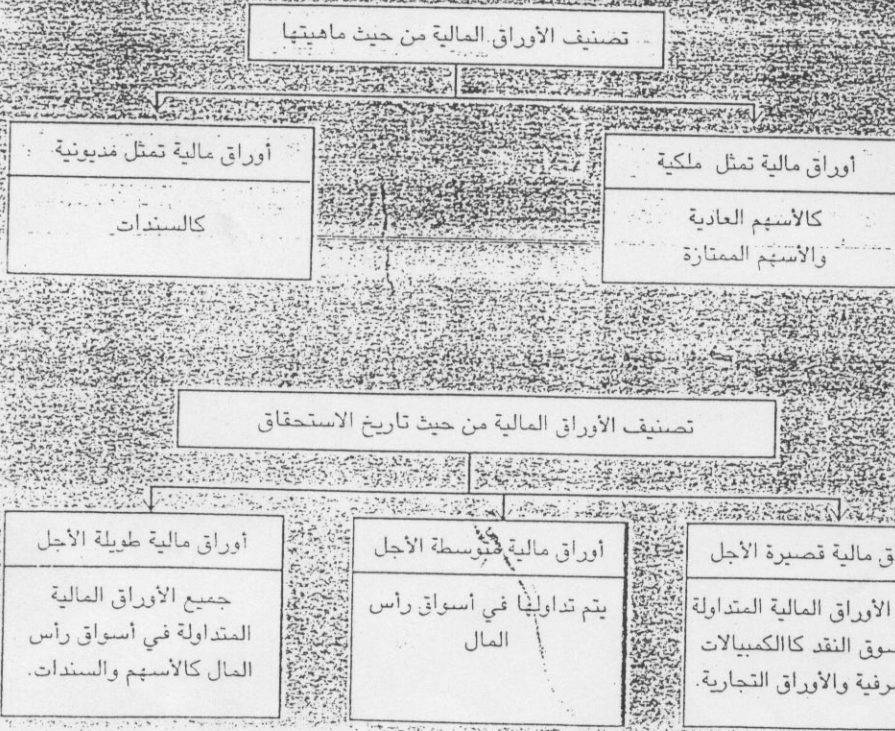 تصنيف الأوراق المالية من حيث ماهيتها
أوراق مالية تمثل ملكية
كالأسهم العادية
والأسهم الممتازة
أوراق مالية تمثل مديونية
كالسندات
تصنيف الأوراق المالية من حيث تاريخ الاستحقاق
مالية قصيرة الأجل
الأوراق المالية المتداولة
النقد كاالكمبيالات
والأوراق التجارية.
أوراق مالية متوسطة الأجل
يتم تداولها في أسواق رأس
المال
أوراق مالية طويلة الأجل
جميع الأوراق المالية
المتداولة في أسواق رأس
المال كالأسهم والسندات.